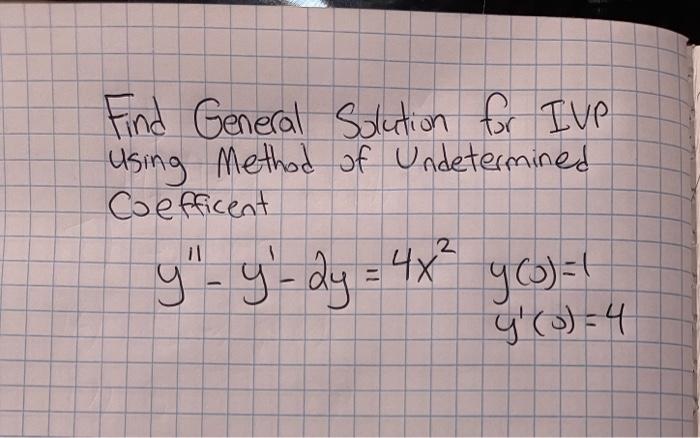 Find General Solution for IVP
using Method of Undetermined
Coefficent
y'' - y' - 2y = 4x² y(0)=1
y'(0)=4